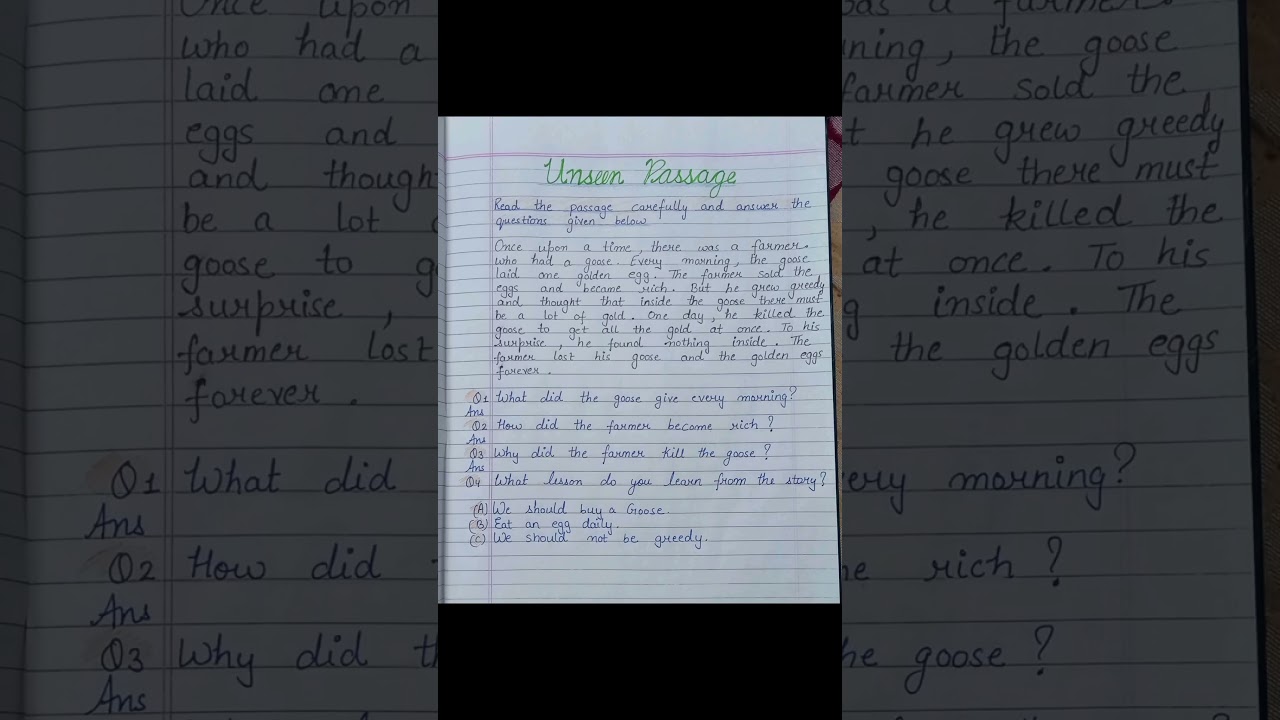 Unseen Passage
Read the passage carefully and answer the
questions given below
Once upon a time, there was a farmer.
who had a goose. Every morning, the goose
laid one golden egg. The farmer sold the
eggs and became rich. But he grew greedy
and thought that inside the goose there must
be a lot of gold. One day, he killed the
goose to get all the gold at once. To his
surprise, he found nothing inside. The
farmer lost his goose and the golden eggs
forever.
Q1 What did the goose give every morning?
Ans
Q2 How did the farmer become rich?
Ans
Q3 Why did the farmer kill the goose?
Ans
Q4 What lesson do you learn from the story?
(A) We should buy a Goose.
(B) Eat an egg daily.
(C) We should not be greedy.